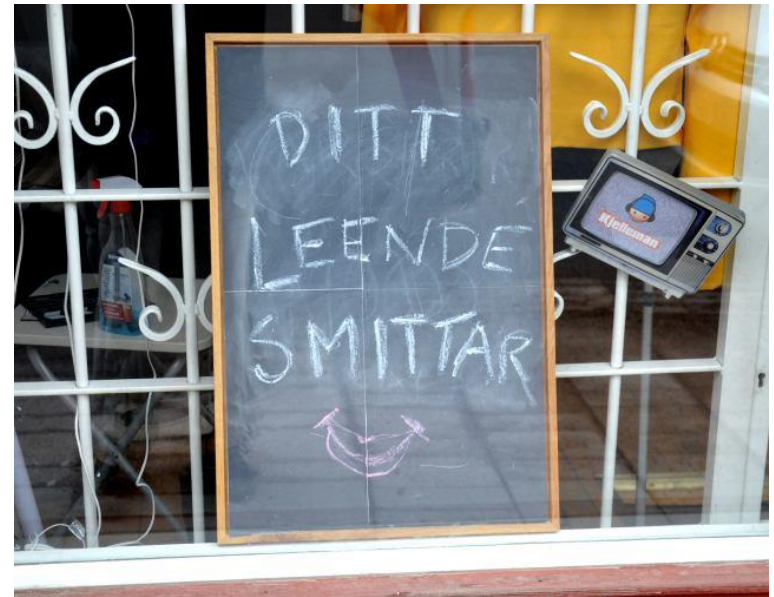 DITT
LEENDE
SMITTAR
Kjelleman